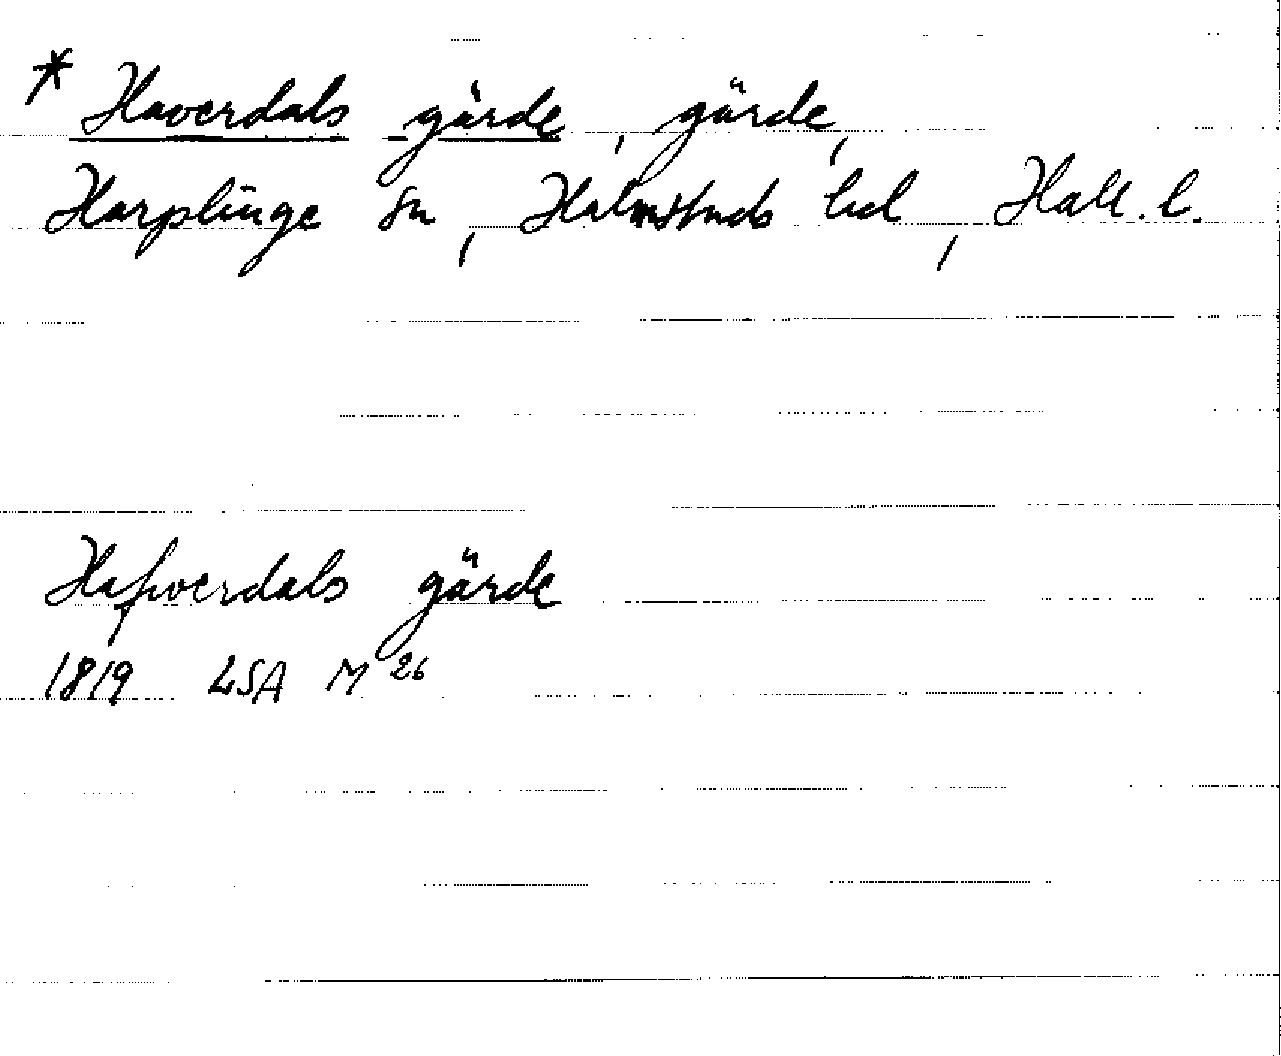 * Haverdals gärde, gärde,
Harplinge sn, Halmstads hd, Hall. l.
Hafverdals gärde
1819 LSA M 26